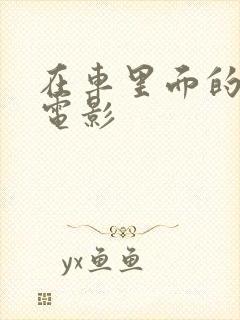 在車里而的
電影
yx鱼鱼